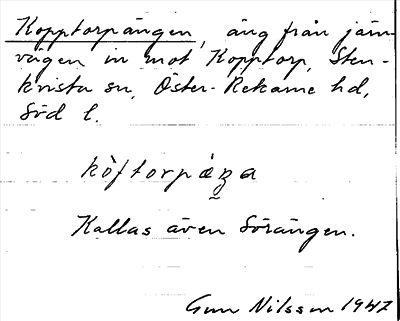 Kopptorpängen, äng från järn-
vägen in mot Kopptorp, Sten-
kvista sn, Öster-Rekarne hd,
Söd l.
Kallas även Sörängen.
Gun Nilsson 1947